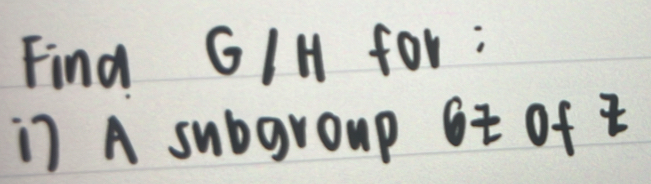 Find G/H for:
i) A subgroup 6Z of Z